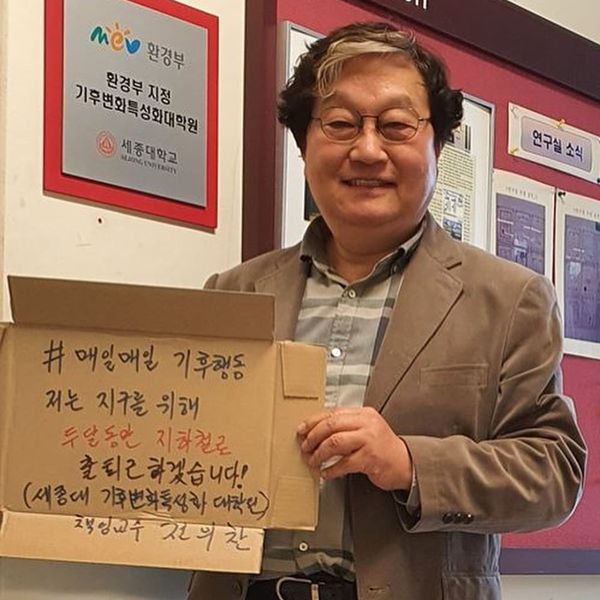 mev 환경부
환경부 지정
기후변화특성화대학원
세종대학교
SEJONG UNIVERSITY
연구실 소식
# 매일매일 기후행동
저는 지구를 위해
두달동안 지하철로
출퇴근하겠습니다!
(세종대 기후변화특성화 대학원)
책임교수 전의찬